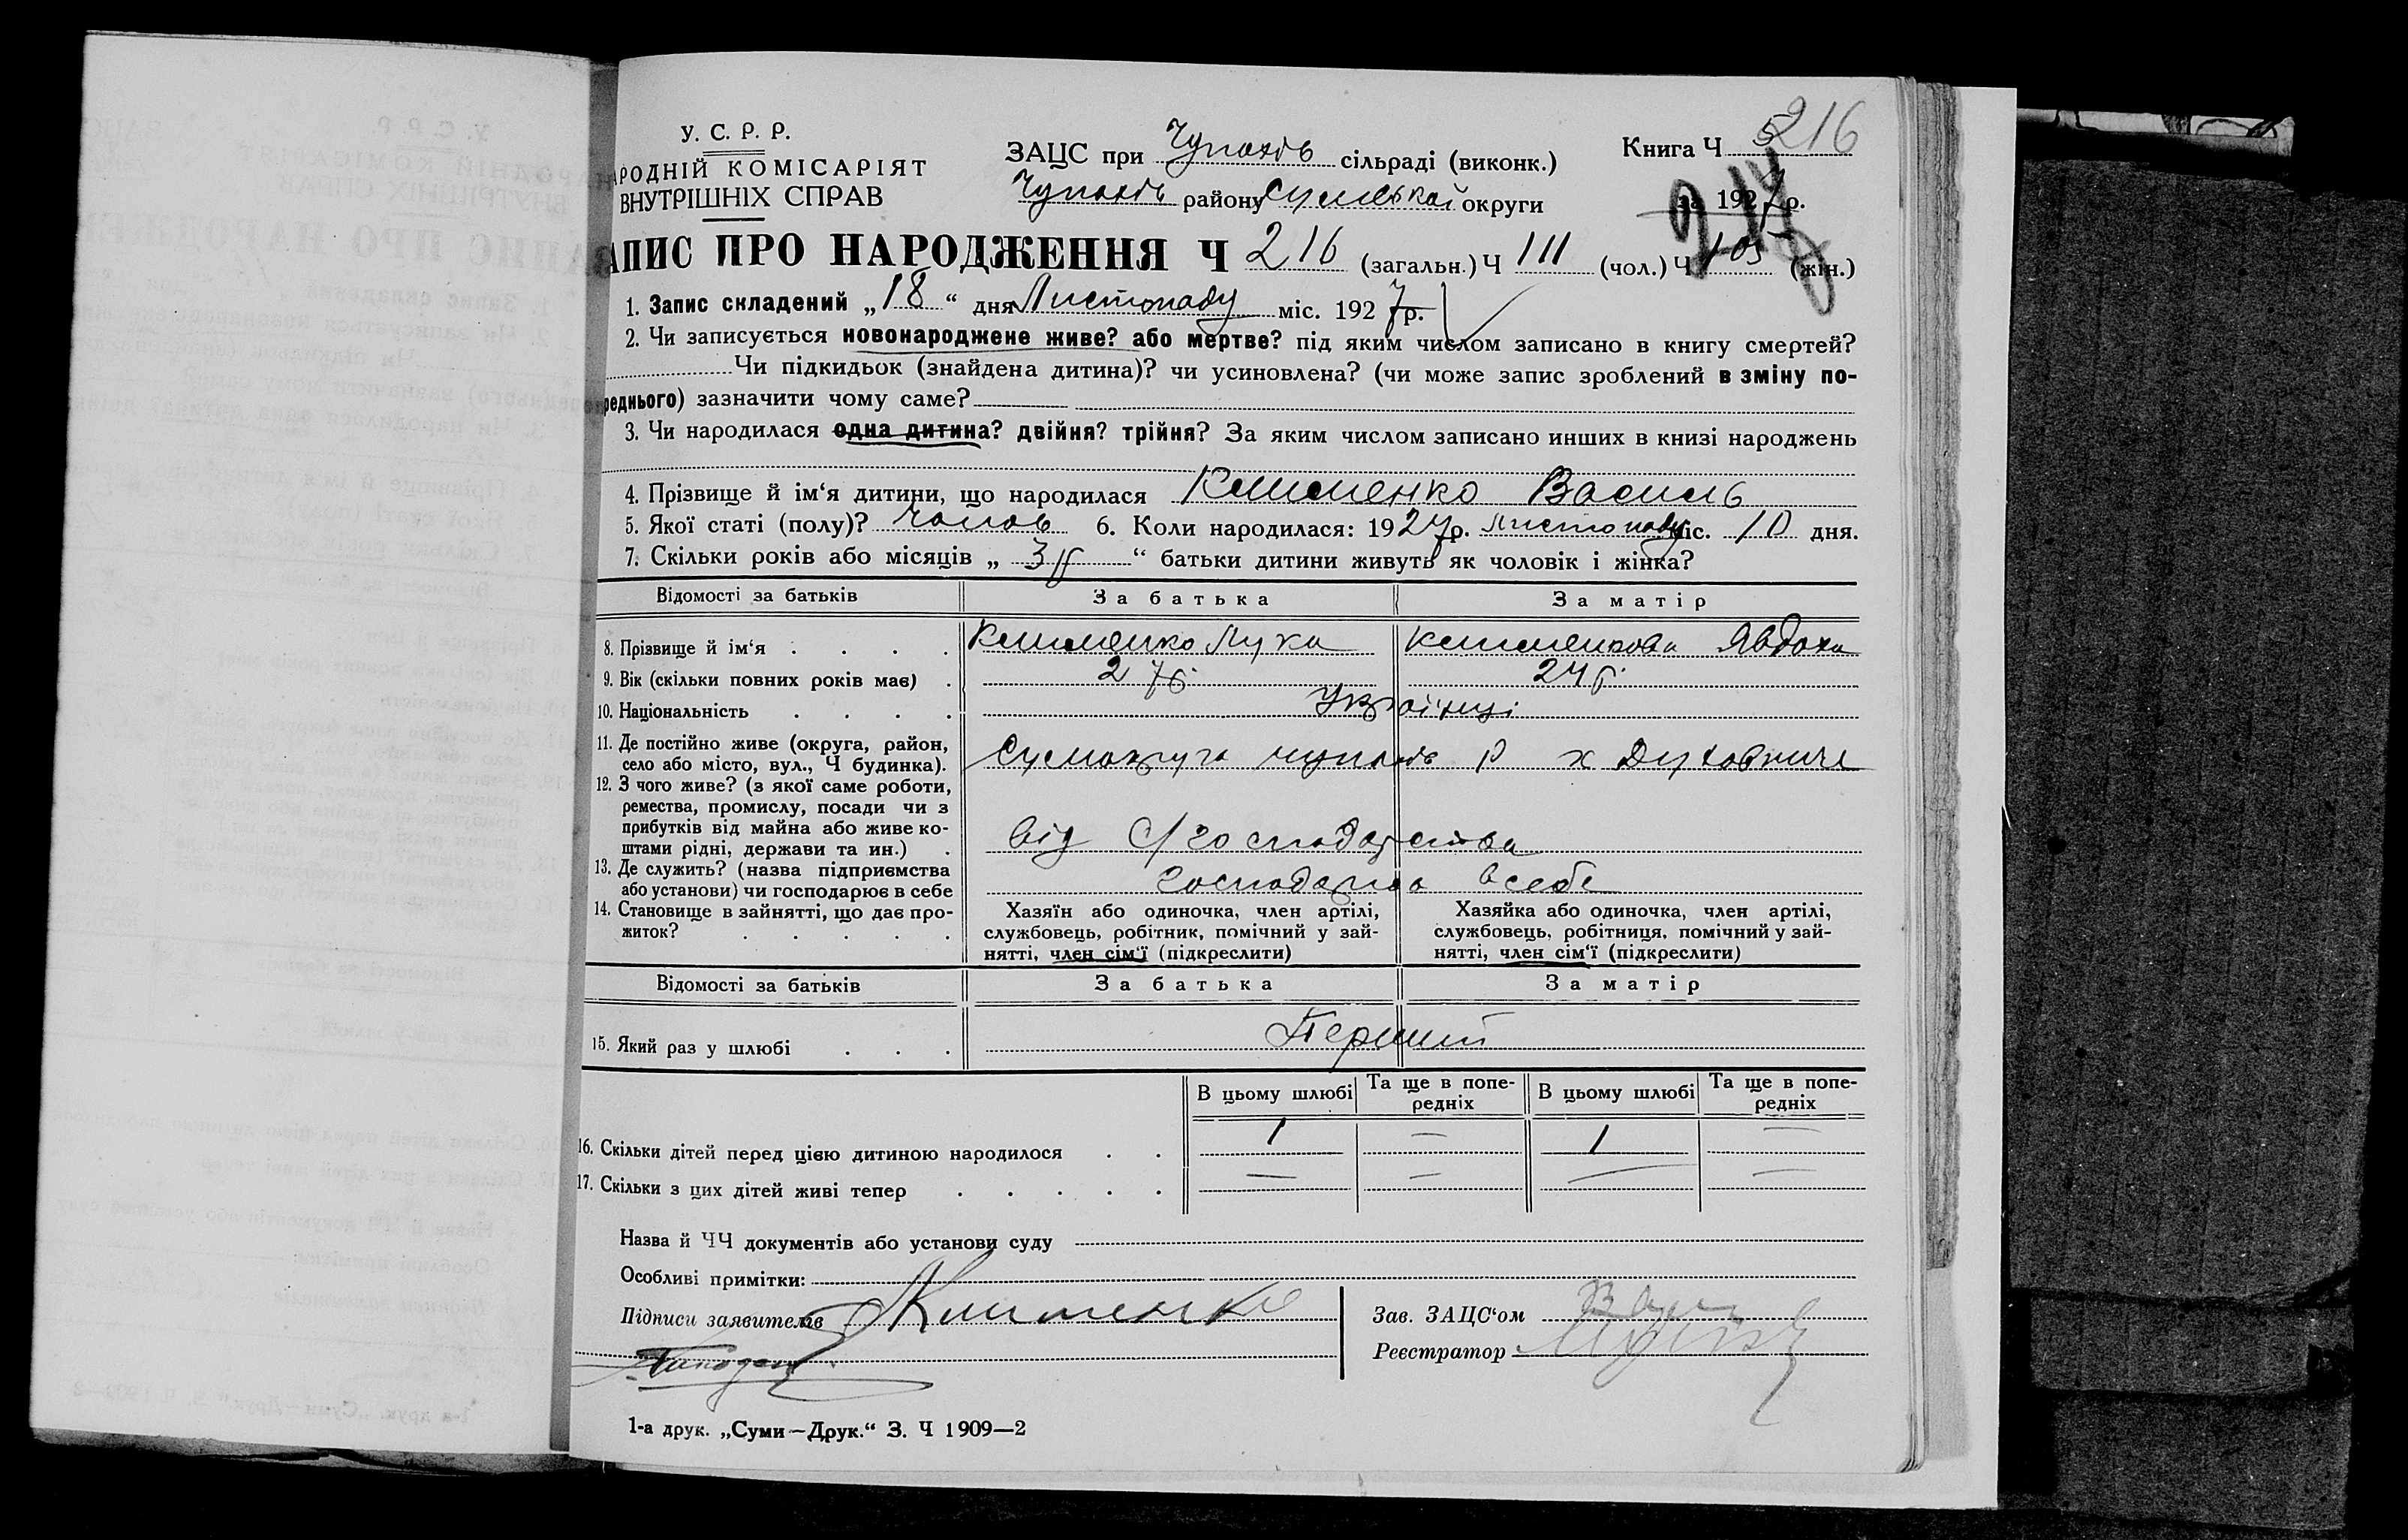 У. С. Р. Р.
АРОДНІЙ КОМІСАРІЯТ
ВНУТРІШНІХ СПРАВ
ЗАЦС при Чупахів сільраді (виконк.)
Чупахів району Сумської округи
Книга Ч 5 216
за 1927р.
АПИС ПРО НАРОДЖЕННЯ Ч 216 (загальн.) Ч 111 (чол.) Ч 105 (жін.)
1. Запис складений „18“ дня Листопаду міс. 1927р.
2. Чи записується новонароджене живе? або мертве? під яким числом записано в книгу смертей?
Чи підкидьок (знайдена дитина)? чи усиновлена? (чи може запис зроблений в зміну по-
реднього) зазначити чому саме?
3. Чи народилася одна дитина? двійня? трійня? За яким числом записано инших в книзі народжень
4. Прізвище й ім‘я дитини, що народилася Клименко Василь
5. Якої статі (полу)? чолов 6. Коли народилася: 1927р. листопаду міс. 10 дня.
7. Скільки років або місяців „3 р“ батьки дитини живуть як чоловік і жінка?
Відомості за батьків За батька За матір
8. Прізвище й ім‘я Клименко Лука Клименкова Явдоха
9. Вік (скільки повних років має) 27р. 24р.
10. Національність Українці
11. Де постійно живе (округа, район,
село або місто, вул., Ч будинка). Сумокруга чупахів р х Духовниче
12. З чого живе? (з якої саме роботи,
ремества, промислу, посади чи з
прибутків від майна або живе ко-
штами рідні, держави та ин.) від С/господарства
13. Де служить? (назва підприємства
або установи) чи господарює в себе господарює в себе
14. Становище в зайнятті, що дає про-
житок?
Хазяїн або одиночка, член артілі,
службовець, робітник, помічний у зай-
нятті, член сім‘ї (підкреслити)
Хазяйка або одиночка, член артілі,
службовець, робітниця, помічний у зай-
нятті, член сім‘ї (підкреслити)
Відомості за батьків За батька За матір
15. Який раз у шлюбі Перший
В цьому шлюбі Та ще в попе-
редніх В цьому шлюбі Та ще в попе-
редніх
16. Скільки дітей перед цією дитиною народилося 1 — 1 —
17. Скільки з цих дітей живі тепер — — — —
Назва й ЧЧ документів або установи суду
Особливі примітки:
Підписи заявителів Клименко
Зав. ЗАЦС‘ом
Реєстратор
1-а друк. „Суми—Друк.“ З. Ч 1909—2